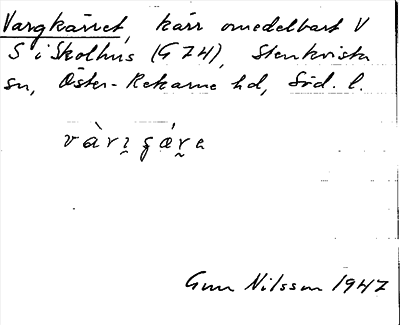 Vargkärret, kärr omedelbart V
S i Skolhus (G 74), Stenkvista
sn, Öster-Rekarne hd, Söd. l.
Gun Nilsson 1947